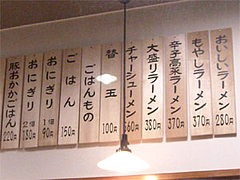 おいしいラーメン 280円
もやしラーメン 370円
辛子高菜ラーメン 370円
大盛りラーメン 380円
チャーシューメン 560円
替玉 100円
ごはんもの
ごはん 150円
おにぎり 1個 90円
おにぎり 2個 180円
豚おかかごはん 220円